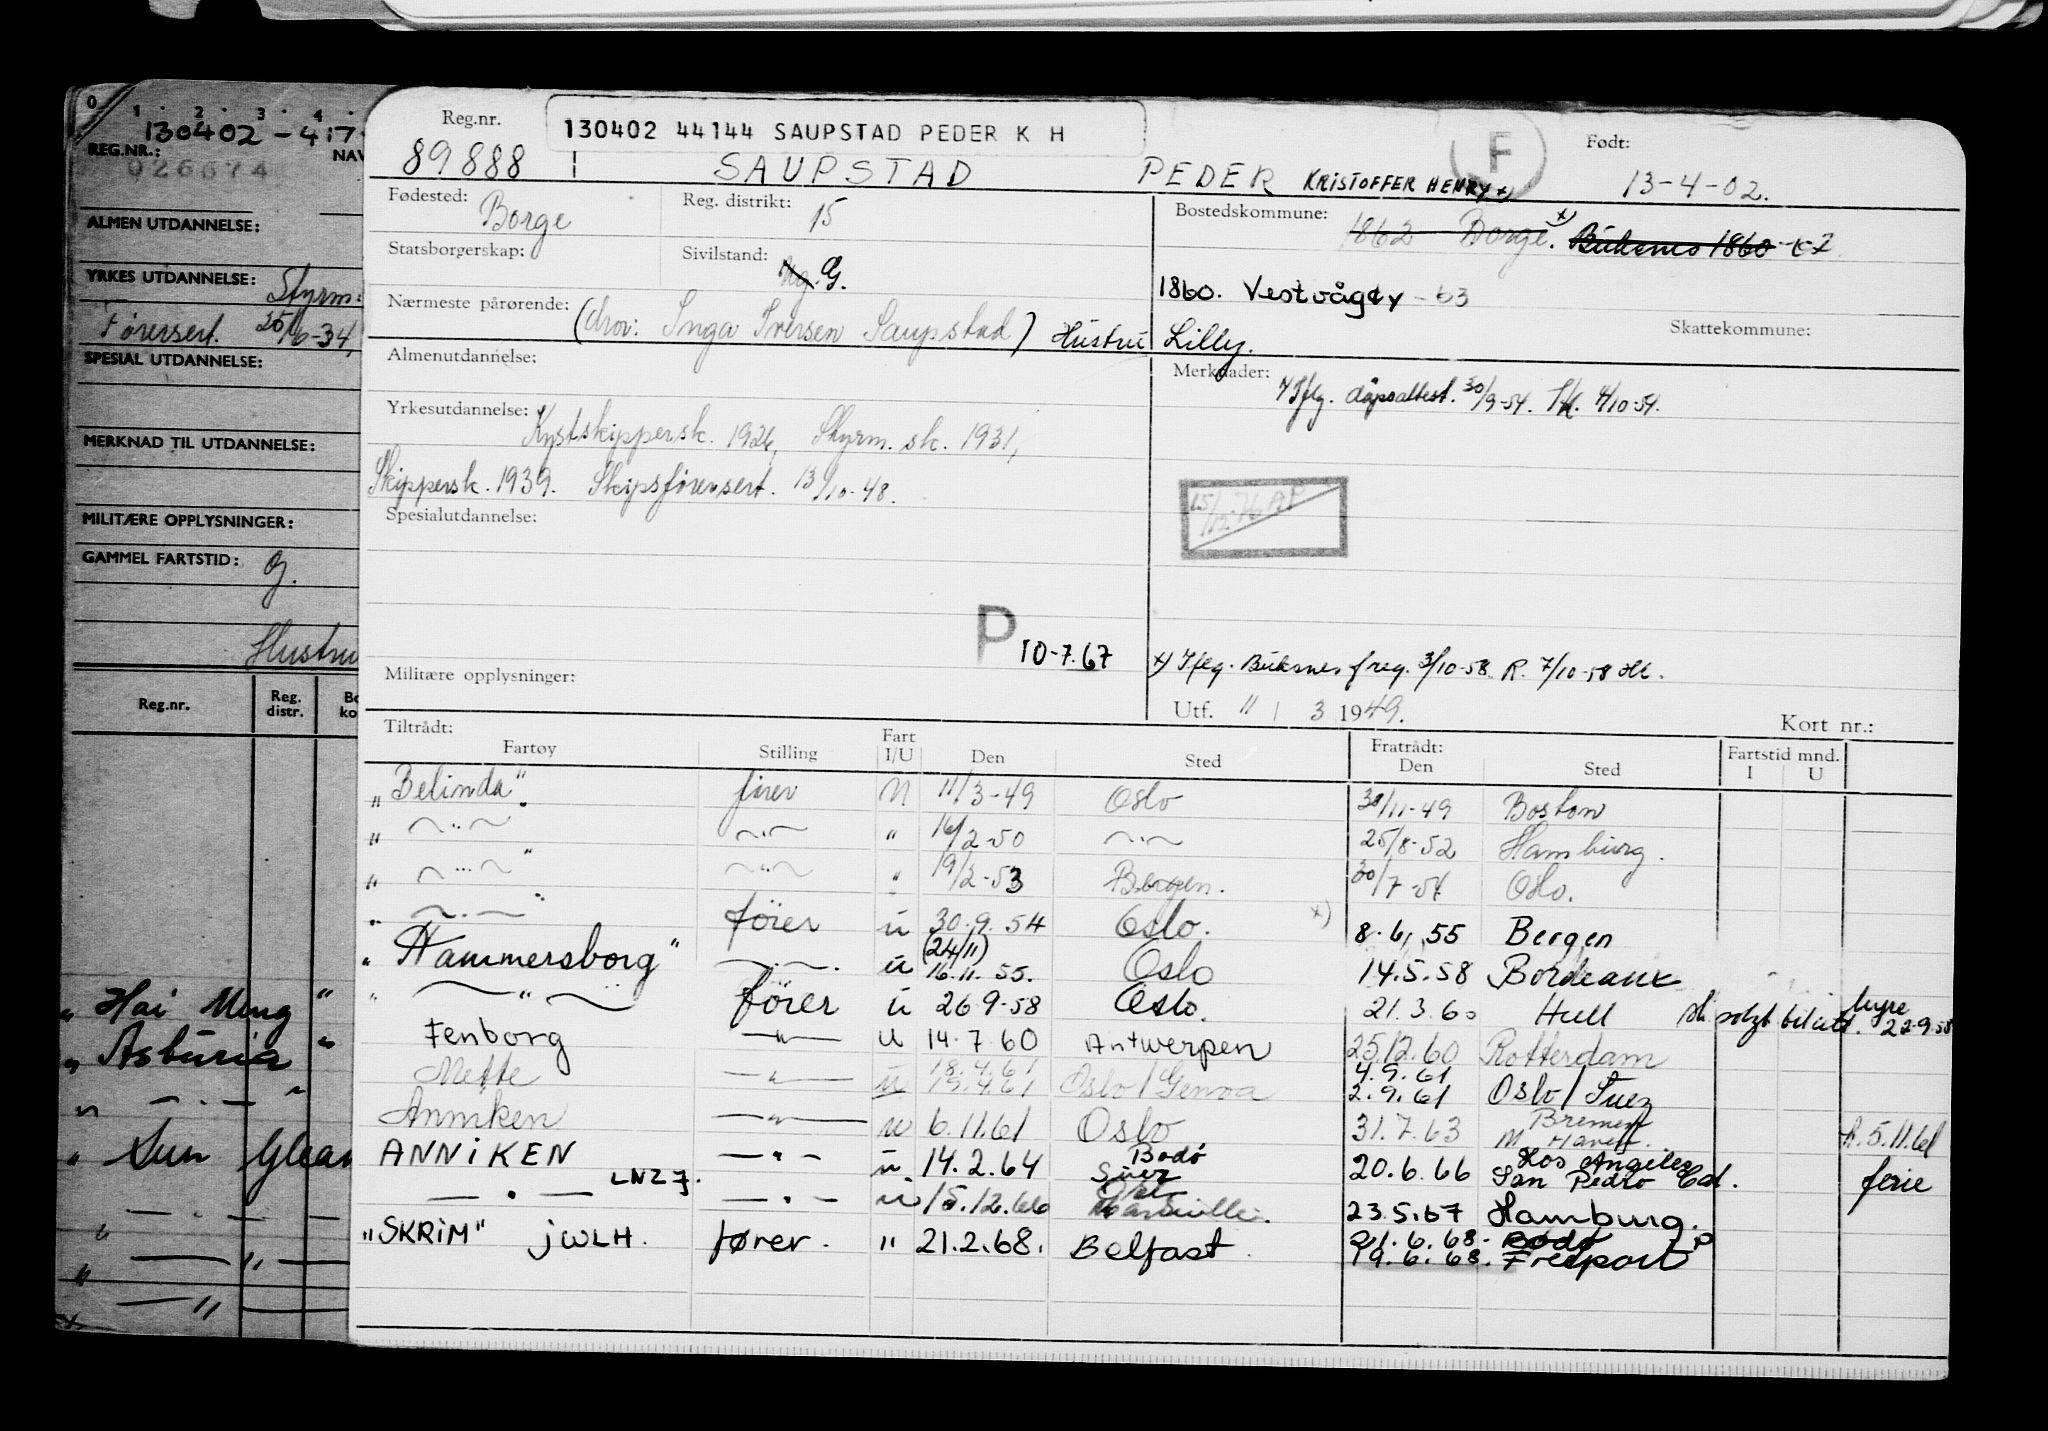 0 1 2 3 4
130402-417
REG.NR.: NAV
026674
ALMEN UTDANNELSE:
YRKES UTDANNELSE: Styrm:
Førersert. 25/6-34,
SPESIAL UTDANNELSE:
MERKNAD TIL UTDANNELSE:
MILITÆRE OPPLYSNINGER:
GAMMEL FARTSTID: Og.
Hustru
Reg.nr. Reg. distr. Bo ko
" Hai Ming "
" Asturia "
" — . — "
" Sun Glean
" — . —
" — " —
" — " —
Reg.nr. 130402 44144 SAUPSTAD PEDER K H F Født:
89888 SAUPSTAD PEDER KRISTOFFER HENRY x) 13-4-02.
Fødested: Borge Reg. distrikt: 15 Bostedskommune: 1862 Borge. x) Buksnes 1860
Statsborgerskap: Sivilstand: Ug. G.
1860. Vestvågøy - 63
Nærmeste pårørende: (mor: Inga Iversen Saupstad) Hustru Lilly. Skattekommune:
Almenutdannelse: Merknader: x) Iflg. dåpsattest. 30/9-54. 4/10-54.
Yrkesutdannelse: Kystskippersk. 1926, Styrm. sk. 1931,
Skippersk. 1939. Skipsførersert. 13/10-48.
15/12-76 AP
Spesialutdannelse:
P 10-7.67
x) Iflg. Buksnes freg. 3/10-58 R. 7/10-58
Militære opplysninger:
Utf. 11 / 3 1949. Kort nr.:
Tiltrådt: Fratrådt: Fartstid mnd.
Fartøy Stilling Fart I/U Den Sted Den Sted I U
"Belinda". fører U 11/3-49 Oslo 30/11-49 Boston
" — " — — " — " 16/2-50 — " — 25/8-52 Hamburg.
" — " — " — " — " 19/2-53 Bergen. 30/7-54 Oslo.
" — . — " fører u 30.9.54 Oslo. x) 8.6.55 Bergen
" Hammersborg " — . — . u (24/11) 16.11.55. Oslo 14.5.58 Bordeaux
" — " — fører u 26-9-58 Oslo. 21.3.60 Hull sk. solgt bil utl. hyre 22-9-58
Fenborg — " — u 14.7.60 Antwerpen 25.12.60 Rotterdam
Mette — " — u 18.4.61 19.4.61 Oslo/Genoa 4.9.61 2.9.61 Oslo/Suez
Anniken — " — u 6.11.61 Oslo 31.7.63 Bremen Haven. h. 5.11.61
ANNiKEN — " — u 14.2.64 Bodø Suez 20.6.66 Los Angeles San Pedro Cal. ferie
— . — LNZJ. — . — u 15.12.66 Oslo Marseille. 23.5.67 Hamburg.
"SKRiM" jWLH. fører. " 21.2.68. Belfast. 21.6.68. Bodø P
19.6.68. Freeport